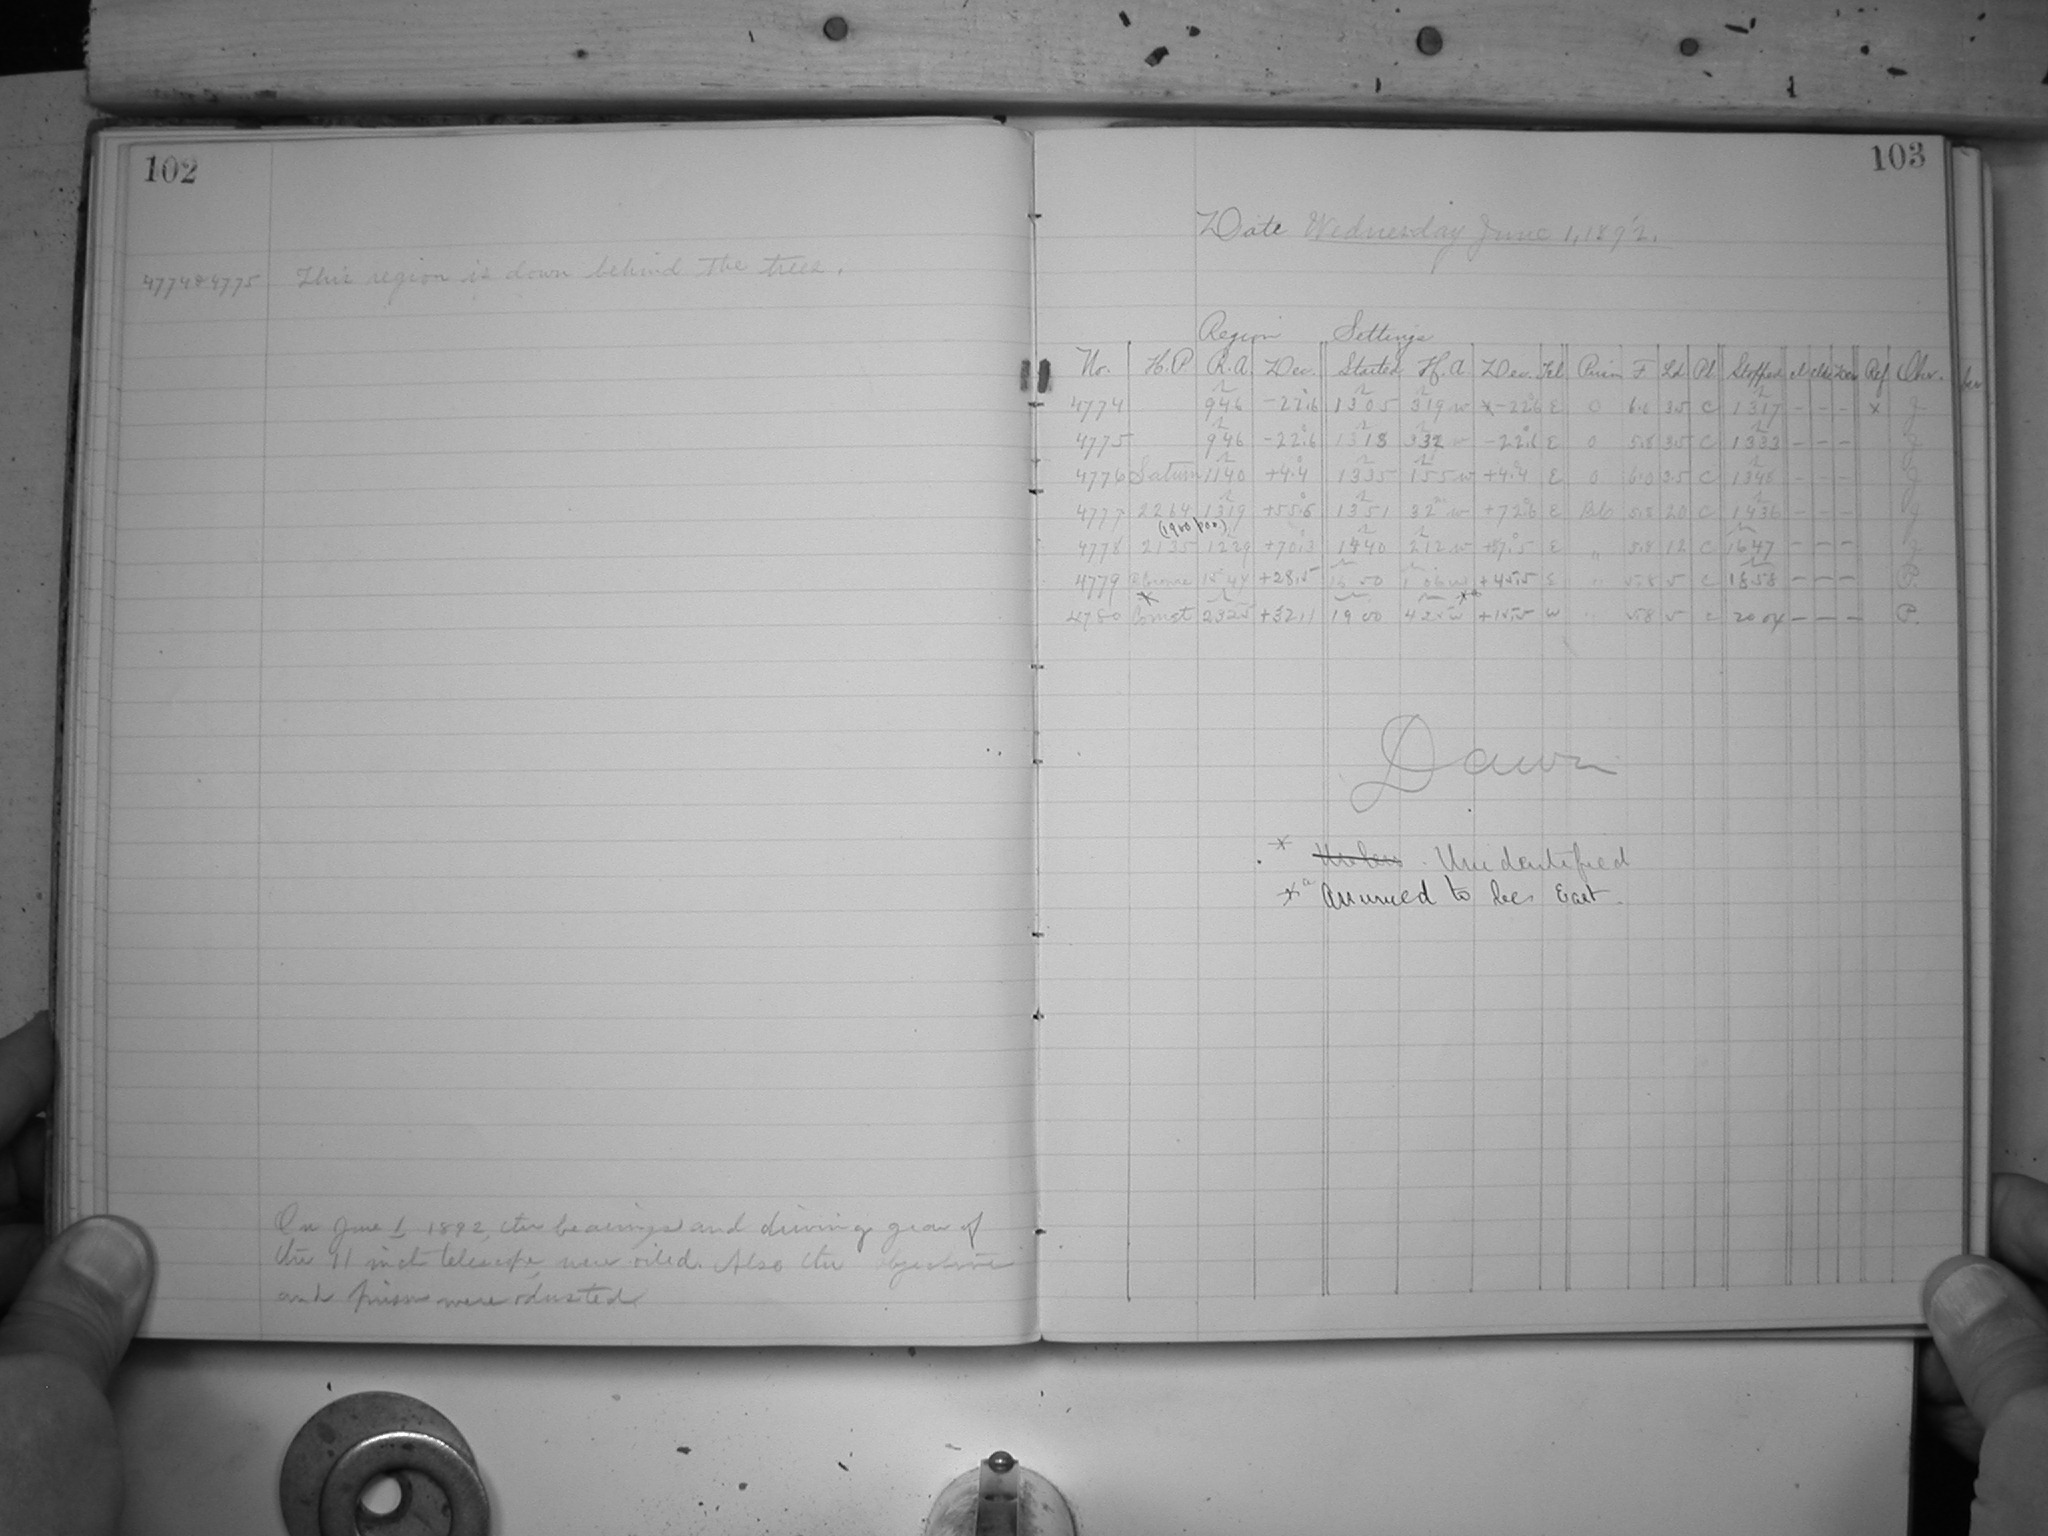 102
4774&4775 This region is down behind the trees.
On June 1 1892, the bearings and driving gear of
the 11 inch telescope were oiled. Also the objective
and prism were dusted
103
Date Wednesday June 1, 1892.
Region Settings
No. H.P R.A. Dec. Started H.A. Dec. Tel Prism F Ld Pl Stopped Ref Obser.
4774 946 -22.6 1305 319 w *-22.6 E 0 6.0 35 C 1317 - - - x J
4775 946 -22.6 1318 332 w -22.6 E 0 5.8 35 C 1333 - - - J
4776 Saturn 1140 +4.4 1335 155 w +4.4 E 0 6.0 35 C 1348 - - - J
4777 2264 1319 +55.6 1351 32 w +72.6 E 5.8 20 C 1436 - - - J
(1900 pos.)
4778 2135 1229 +70.3 1440 212 w E " 5.8 12 C 1647 - - - J
4779 1544 +28.5 1650 1 06 w +45.5 E " 5.8 5 C 1858 - - - P.
* *a
4780 Comet 2325 +32.1 19 00 425 w +15.5 W 5.8 5 C 20 04 - - - P.
Dawn
* Unidentified
*a Assumed to be East.